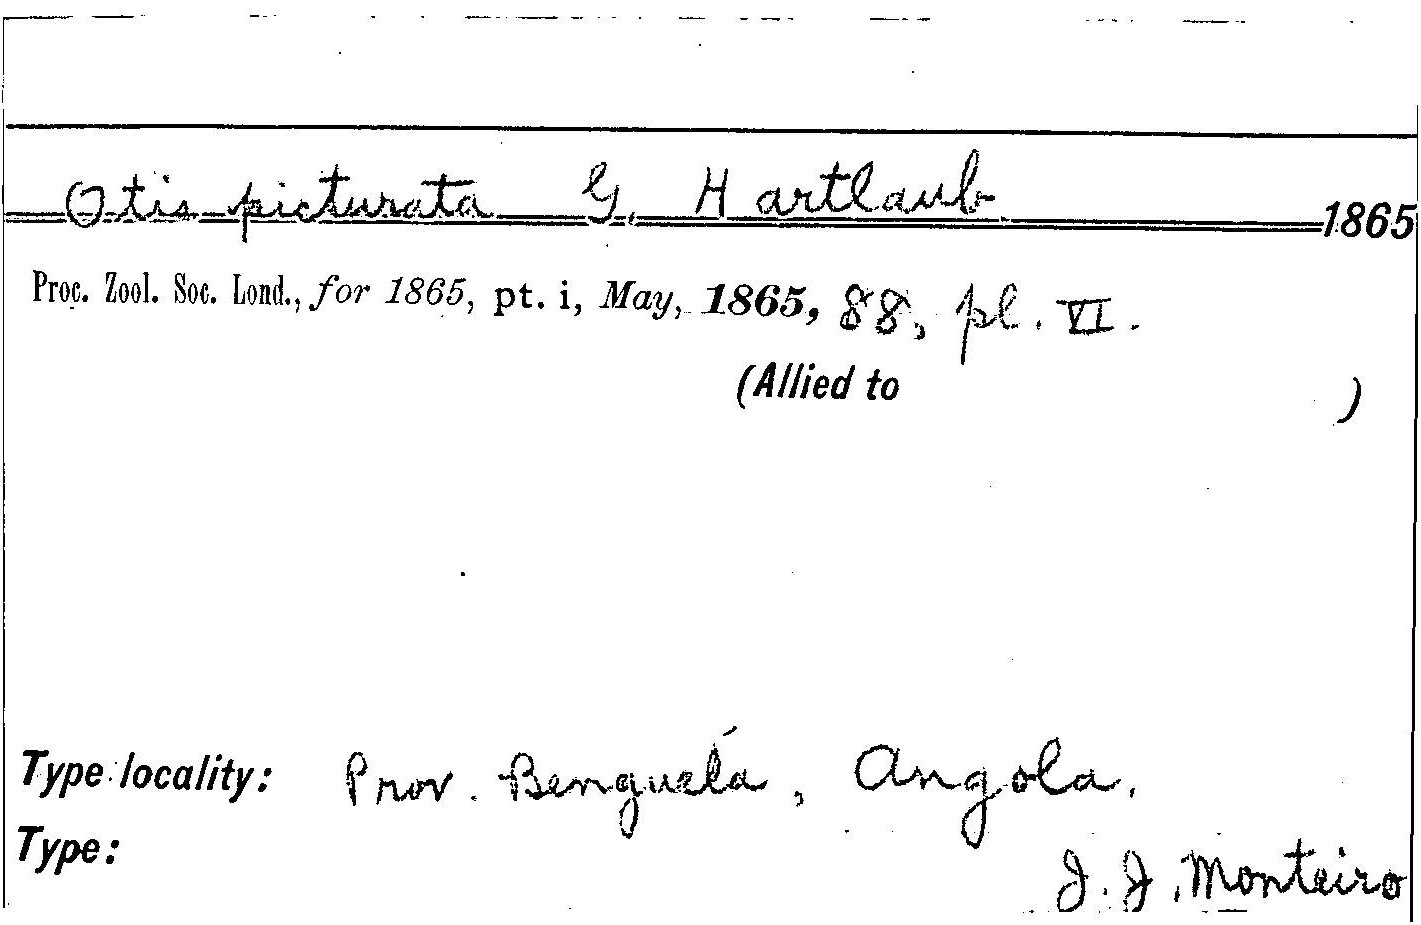 Otis picturata G. Hartlaub 1865
Proc. Zool. Soc. Lond., for 1865, pt. i, May, 1865, 88, pl. VI.
(Allied to )
Type locality: Prov. Benguéla, Angola.
Type:
J. J. Monteiro